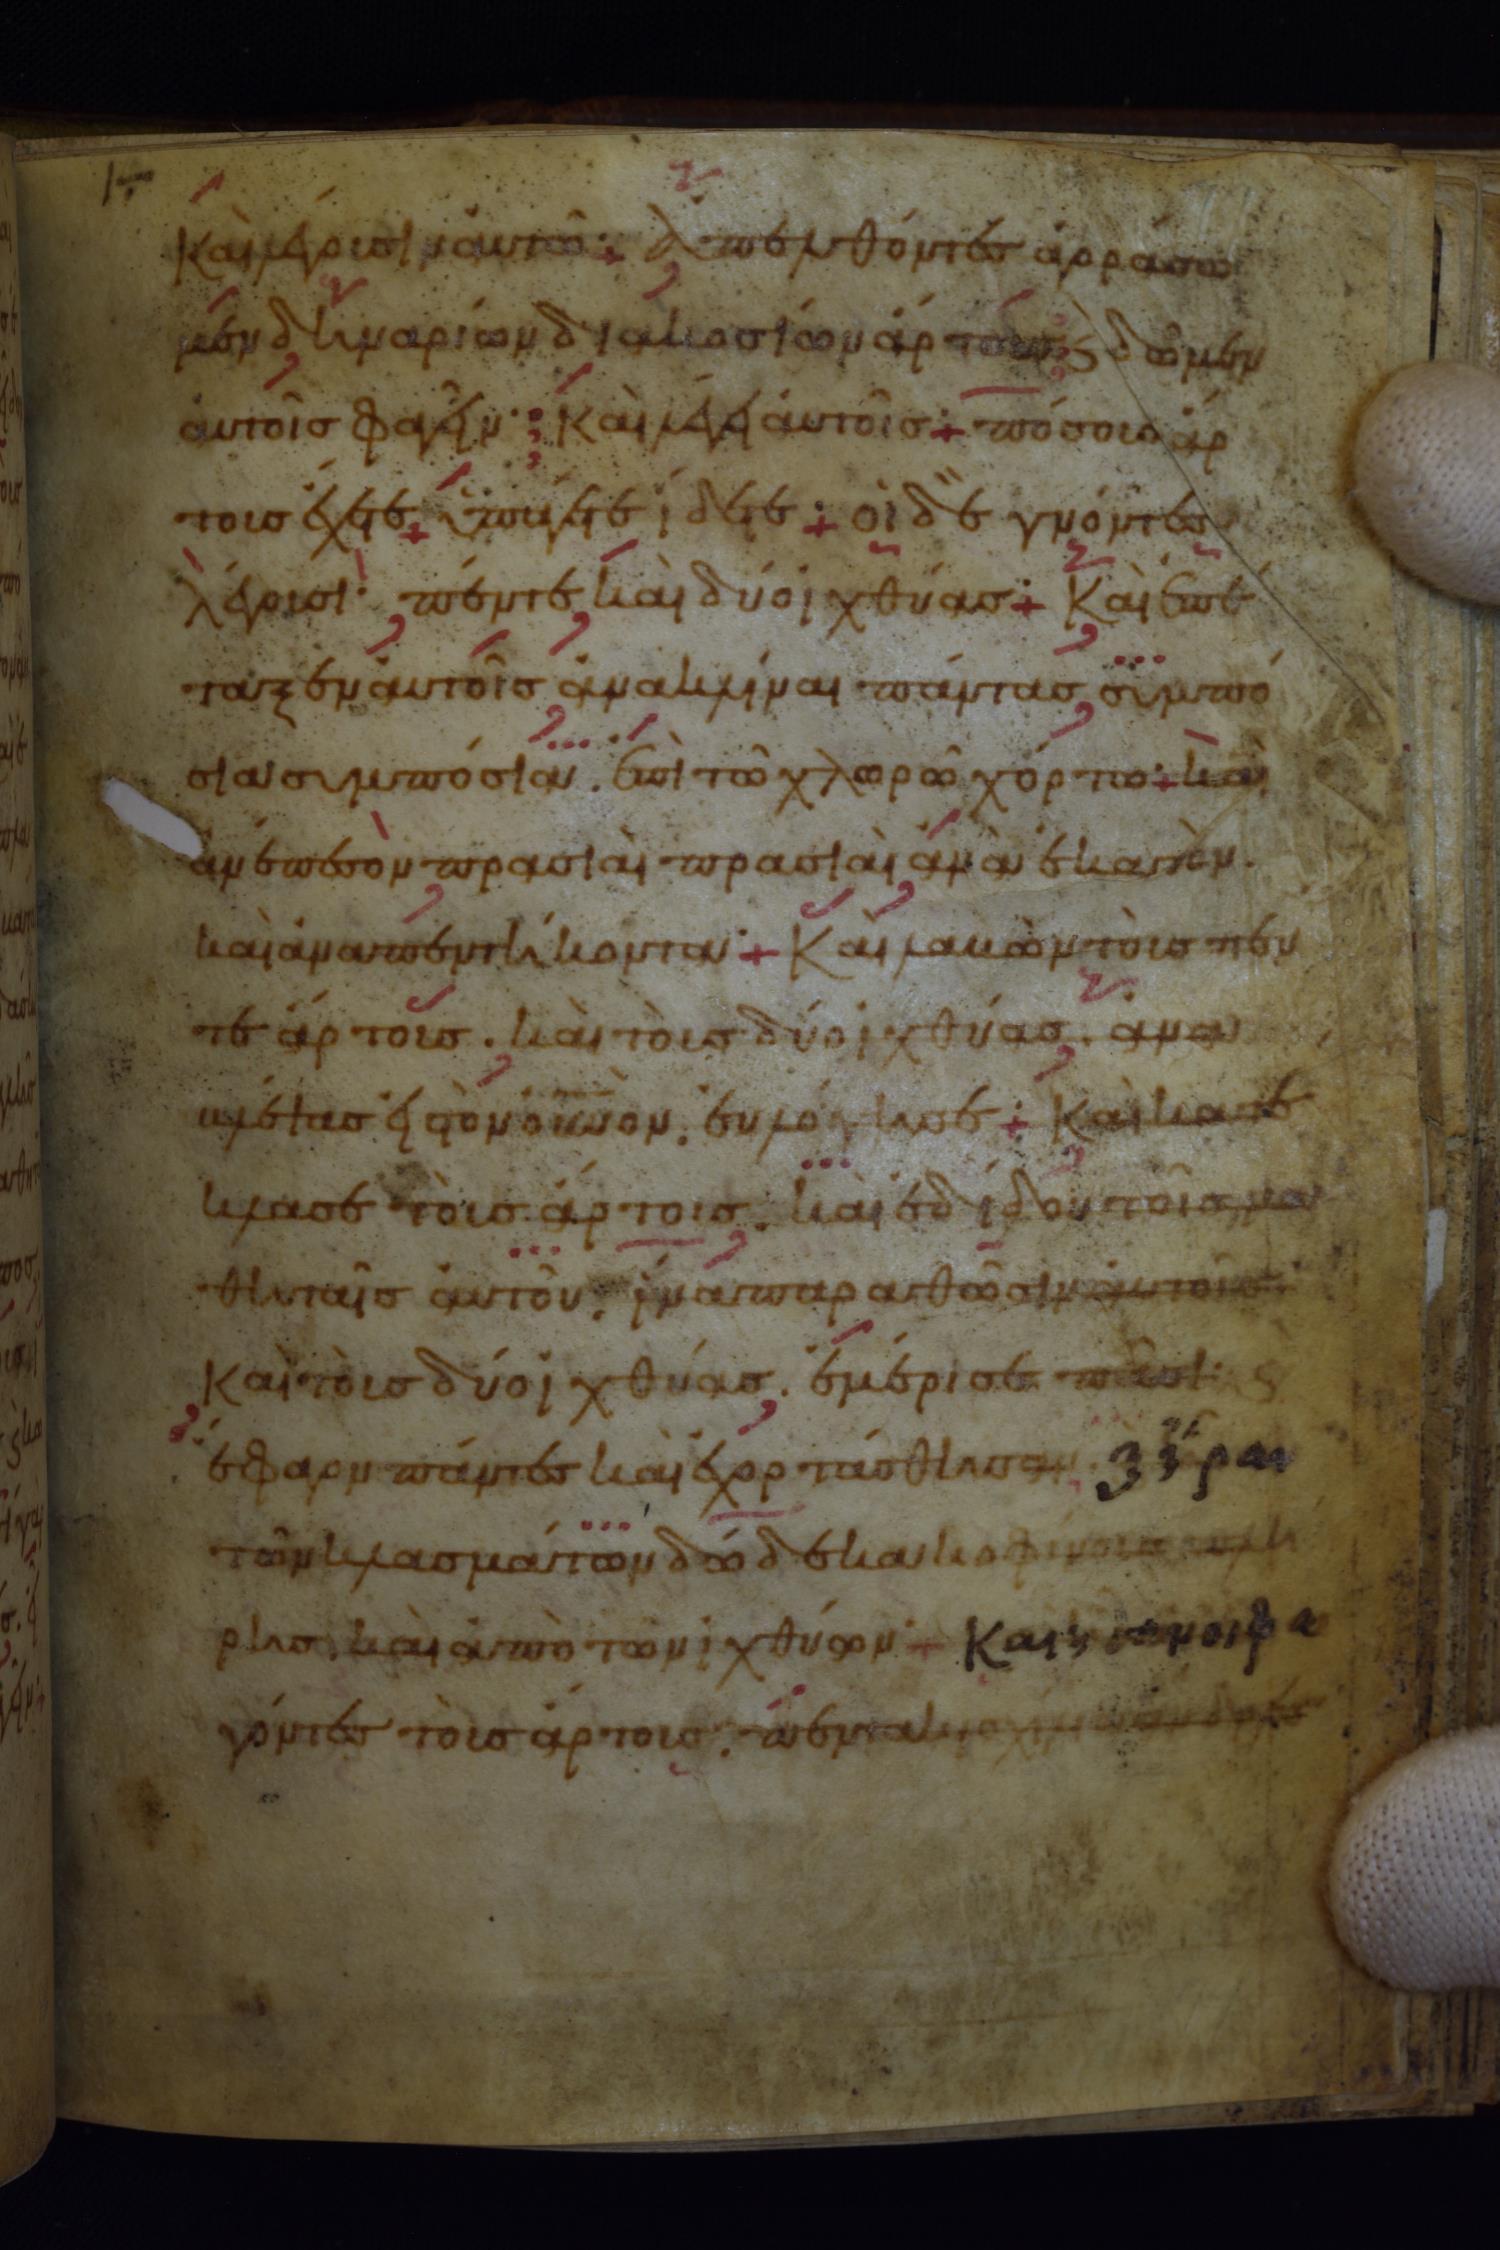 καὶ λέγουσιν αὐτῶ· ἀπελθόντες ἀγοράσω
μεν δηναρίων διακοσίων ἄρτους ς δῶμεν
αὐτοῖς φαγεῖν· καὶ λέγει αὐτοῖς· πόσους ἄρ
τους ἔχετε ὑπάγετε ἴδετε· οἱ δὲ γνόντες
λέγουσι· πέντε καὶ δύο ἰχθύας· Καὶ ἐπέ
ταξεν αὐτοῖς ἀνακλίναι πάντας συμπό
σια συμπόσια. ἐπὶ τῶ χλωρῶ χόρτω· καὶ
ἀνέπεσον πρασιαὶ πρασιαὶ ἀνὰ ἑκατὸν.
καὶ ἀνα πεντήκοντα· Καὶ λαβὼν τοὺς πέν
τε ἄρτους. καὶ τοὺς δύο ἰχθύας. ἀνα
βλέψας εἰς τὸν οὐνον. εὐλόγησε· Καὶ κατέ
κλασε τοὺς ἄρτους. καὶ ἐδίδου τοῖς μα
θηταῖς αὐτοῦ. ἵνα παραθῶσιν αὐτοῖς·
Καὶ τοὺς δύο ἰχθύας. ἐμέρισε πᾶσι·
ἔφαγον πάντες καὶ ἐχορτάσθησαν
τῶν κλασμάτων δώδεκα κοφίνους πλή
ρης. καὶ ἀπὸ τῶν ἰχθύων· Και
γόντες τοὺς ἄρτους.